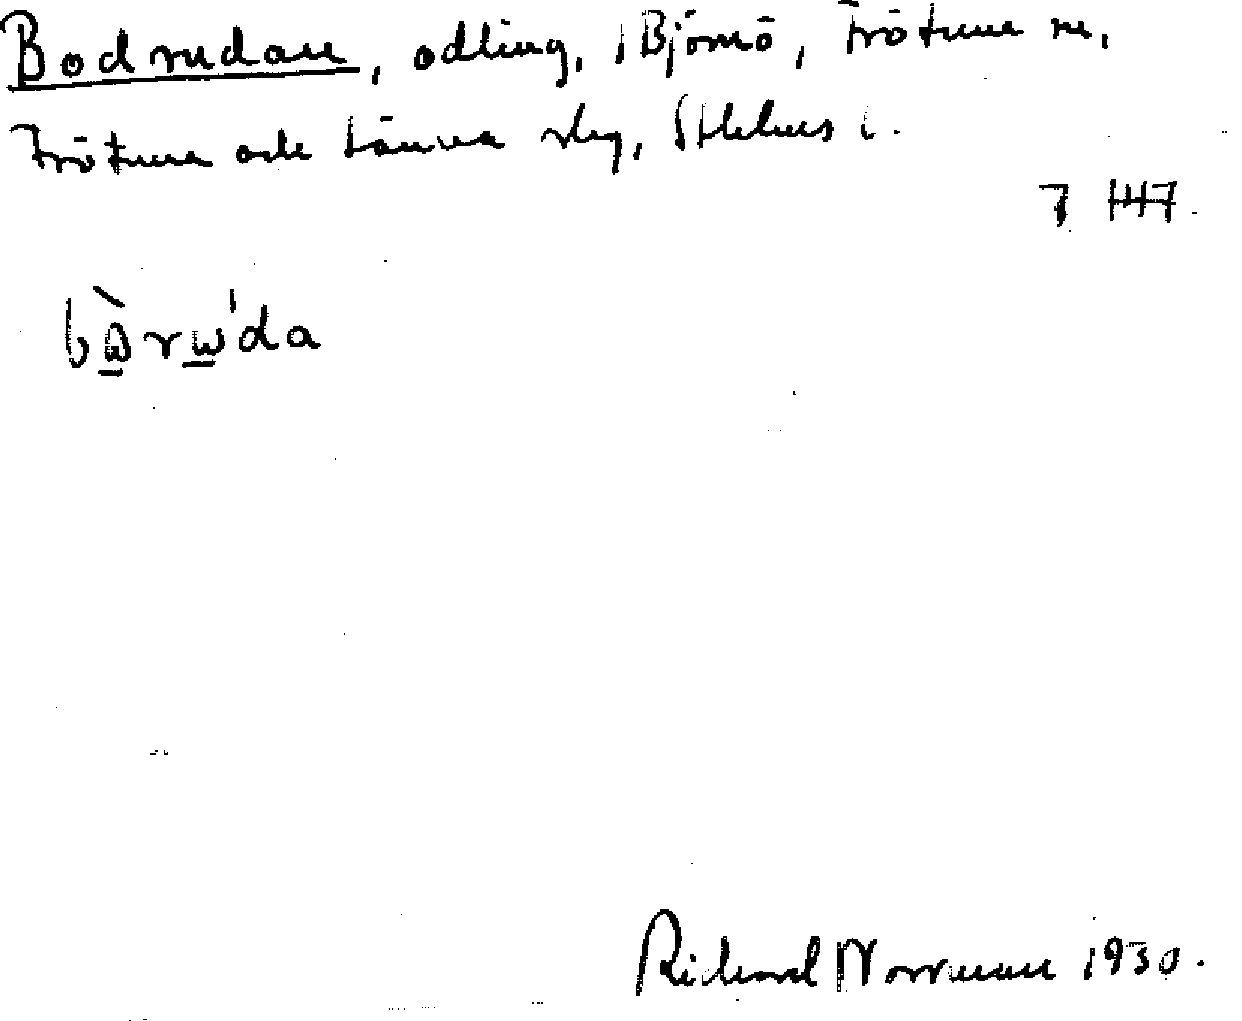 Bodrudan, odling, i Björnö, Frötuna sn,
Frötuna och Länna slg, Sthlms l.
7 H47.
bὼrω'da
Richard Norrman 1930.